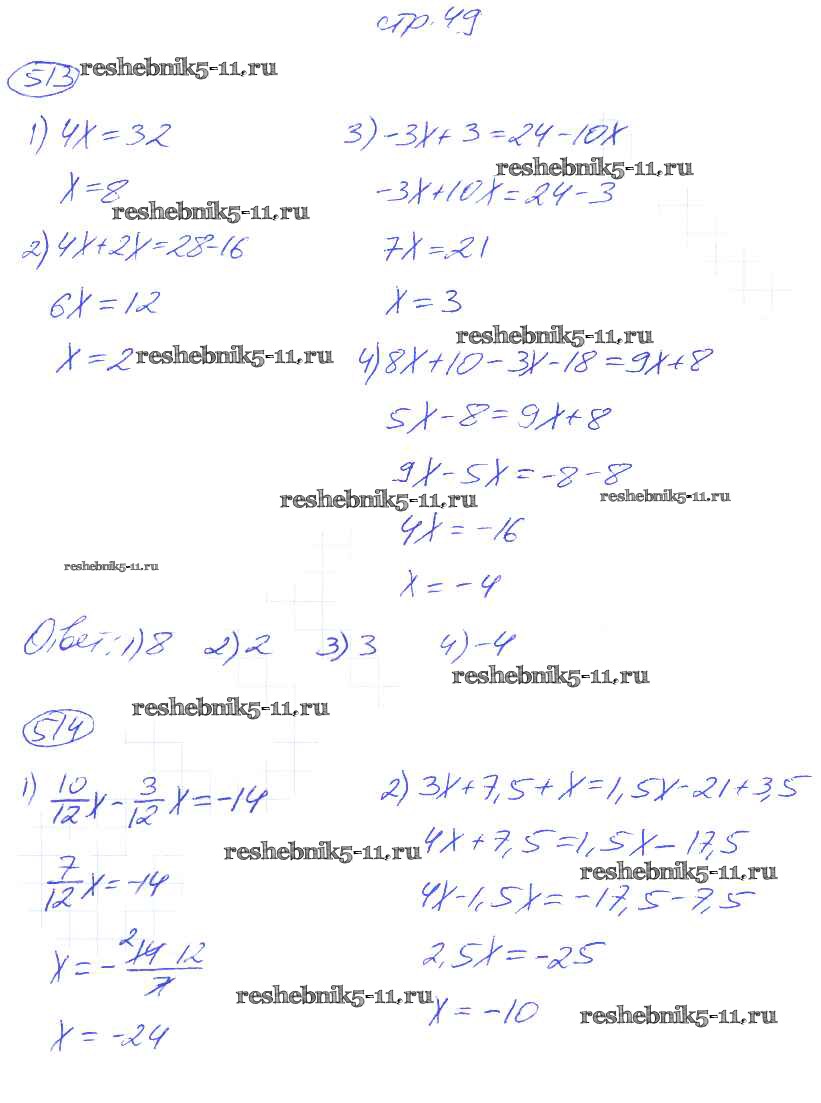 стр. 49
513 reshebnik5-11.ru
1) 4x = 32
x = 8
reshebnik5-11.ru
2) 4x + 2x = 28 - 16
6x = 12
x = 2 reshebnik5-11.ru
3) -3x + 3 = 24 - 10x
reshebnik5-11.ru
-3x + 10x = 24 - 3
7x = 21
x = 3
reshebnik5-11.ru
4) 8x + 10 - 3x - 18 = 9x + 8
5x - 8 = 9x + 8
9x - 5x = -8 - 8
reshebnik5-11.ru reshebnik5-11.ru
4x = -16
x = -4
reshebnik5-11.ru
Ответ: 1) 8 2) 2 3) 3 4) -4
reshebnik5-11.ru
reshebnik5-11.ru
514
1) 10/12 x - 3/12 x = -14
7/12 x = -14
x = - 2 14 12 / 7
x = -24
2) 3x + 7,5 + x = 1,5x - 21 + 3,5
4x + 7,5 = 1,5x - 17,5
reshebnik5-11.ru reshebnik5-11.ru
4x - 1,5x = -17,5 - 7,5
2,5x = -25
reshebnik5-11.ru
x = -10 reshebnik5-11.ru